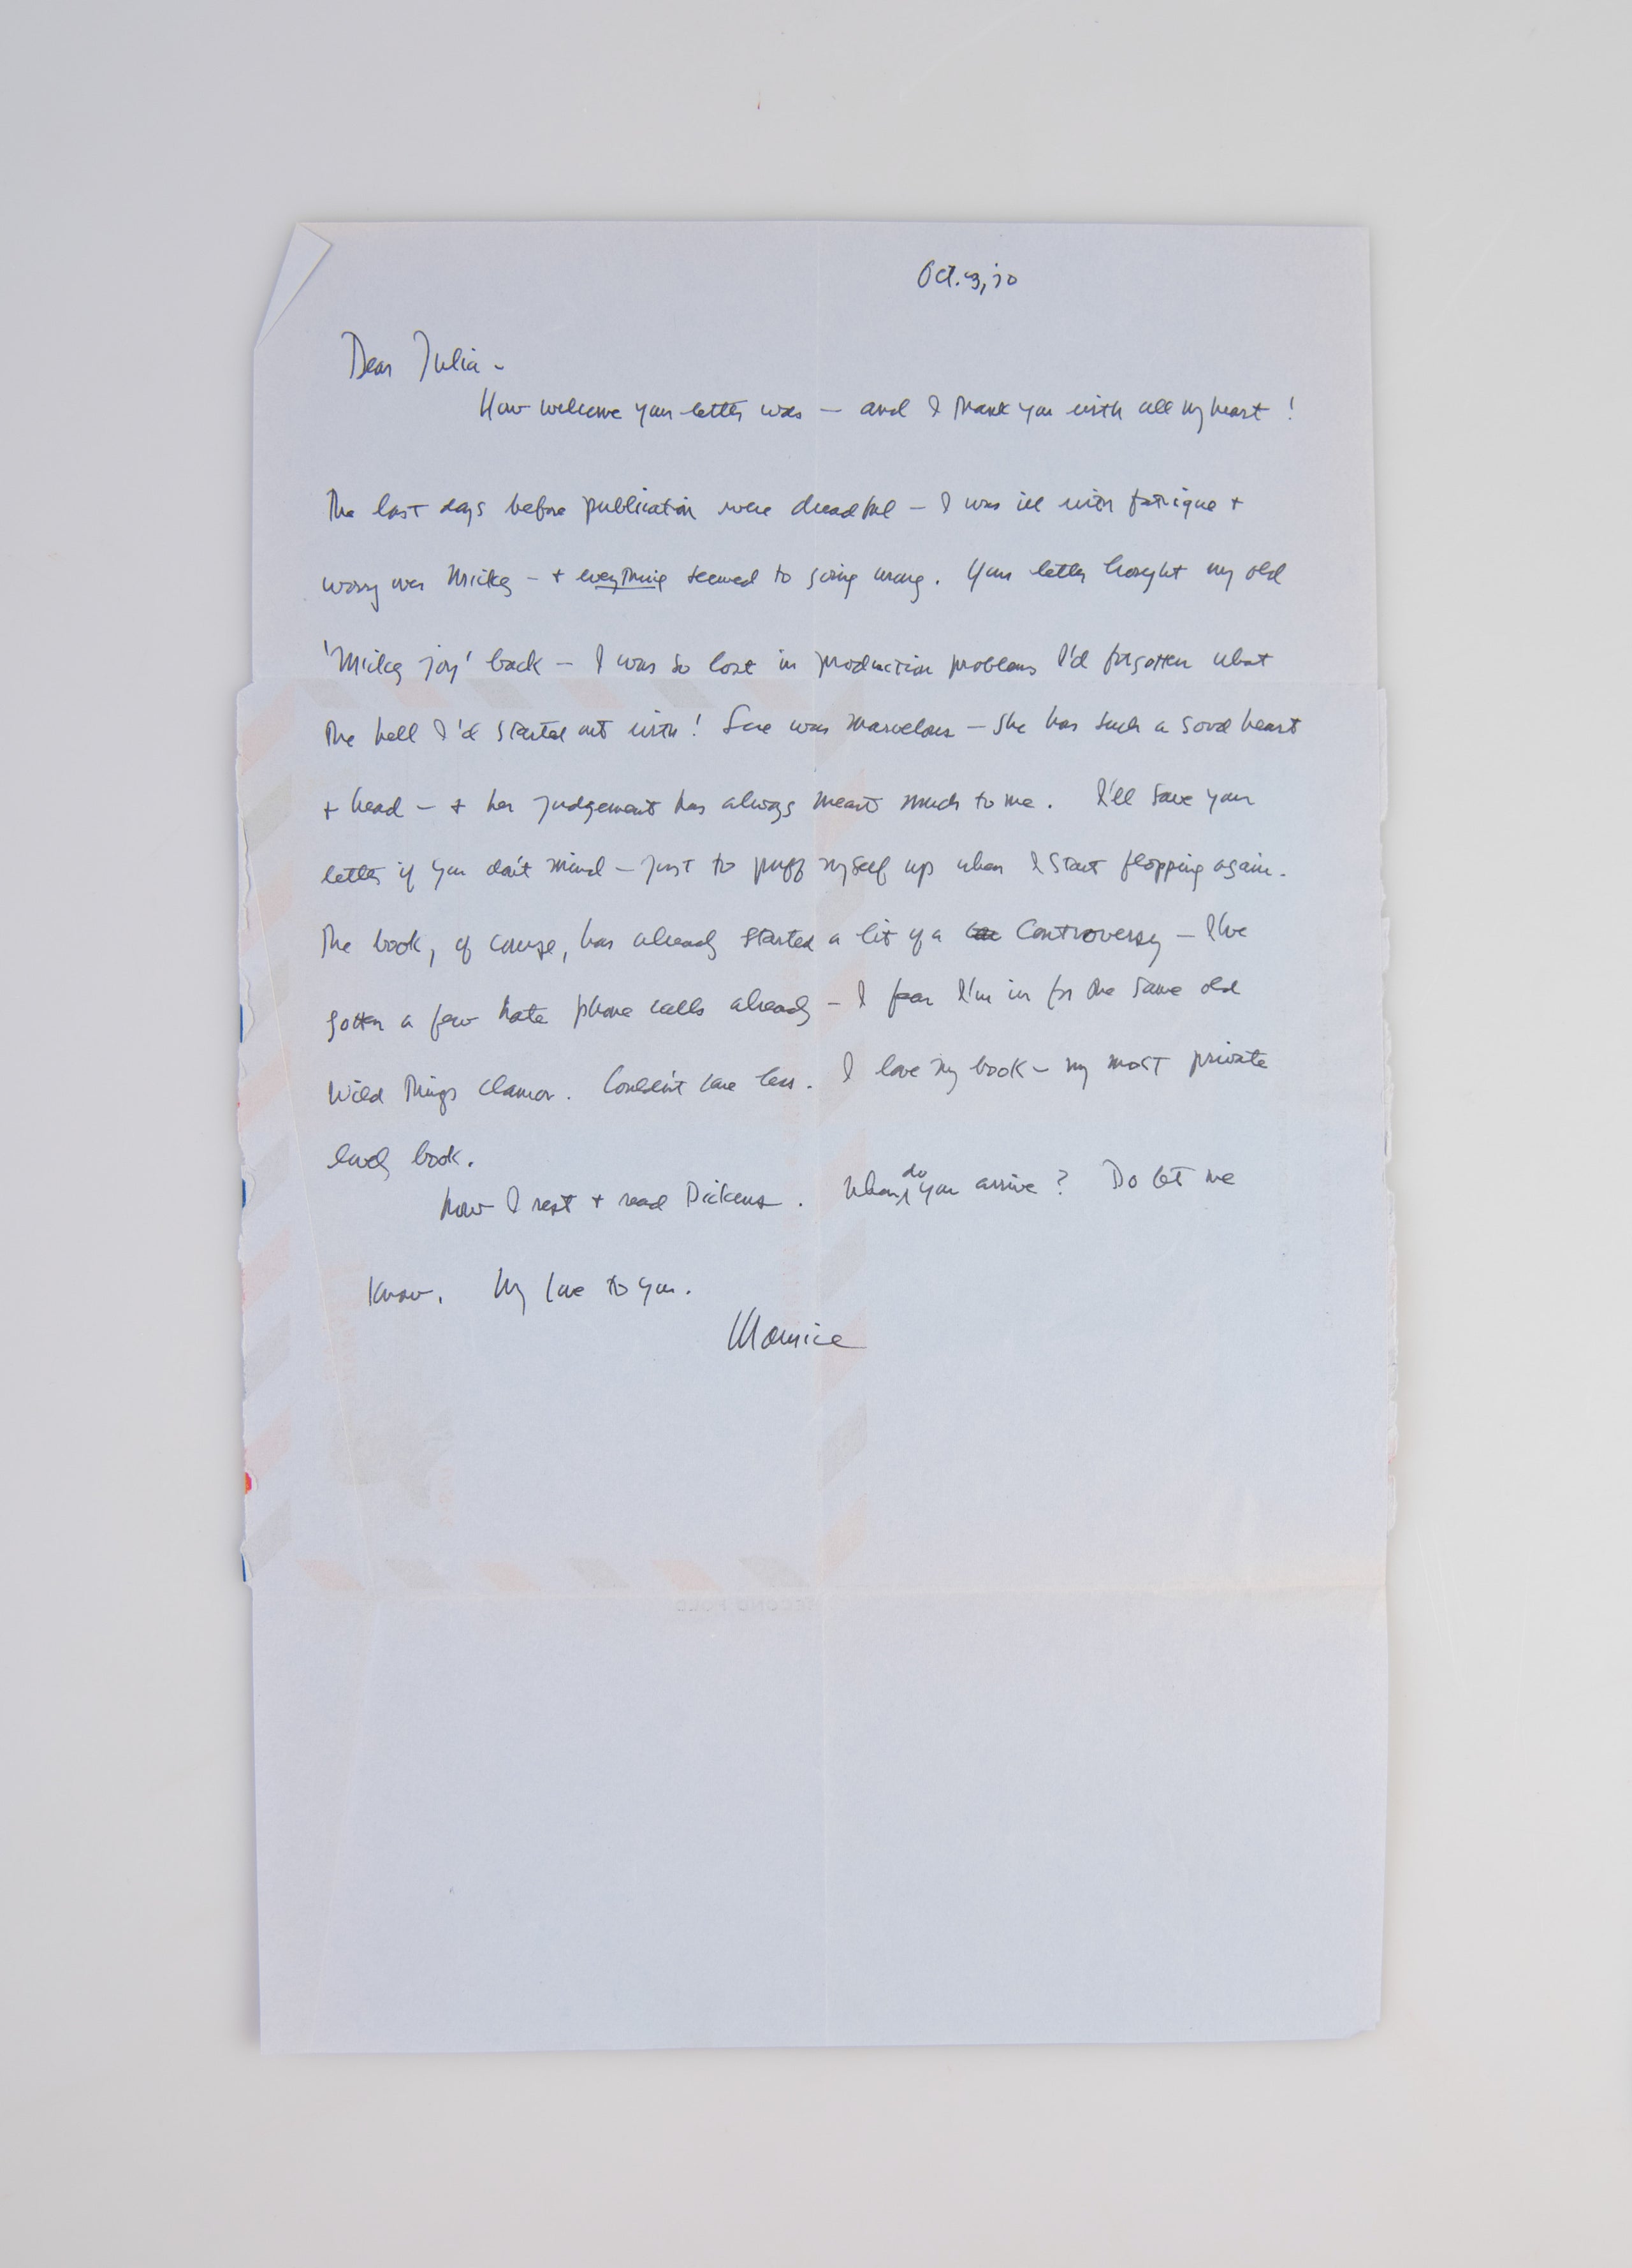 Oct. 3, 70
Dear Julia –
How welcome your letter was – and I thank you with all my heart!
The last days before publication were dreadful – I was ill with fatigue +
worry over Mickey – + everything seemed to going wrong. Your letter brought my old
'Mickey joy' back – I was so lost in production problems I'd forgotten what
the hell I'd started out with! Sue was marvelous – she has such a good heart
+ head – + her judgement has always meant much to me. I'll save your
letter if you don't mind – just to puff myself up when I start flopping again.
The book, of course, has already started a bit of a controversy – I've
gotten a few hate phone calls already – I fear I'm in for the same old
Wild Things clamor. Couldn't care less. I love my book – my most private
lovely book.
Now I rest + read Dickens. When do you arrive? Do let me
know. My love to you.
Maurice
SECOND FOLD